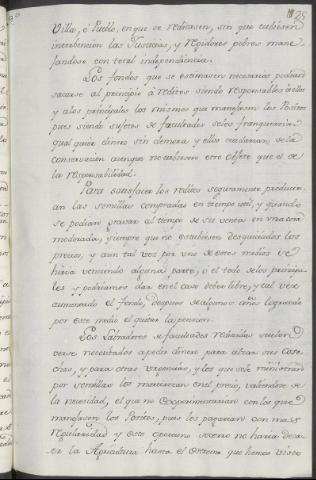 25
Villa, ò Pueblo, en que se necesitasen, sin que tubiesen
intervencion las Justicias, y Regidores pobres mane
jandose con total independencia.
Los fondos que se estimasen necesarios podrian
sacarse al principio à reditos siendo responsables
y alos principales los mismos que manejasen los Positos
pues siendo sujetos de facultades se les franquearia
qualquier dinero sin demora, y ellos cuidarian, se la
conservacion aunque no tubiesen otro objeto que el de
la responsabilidad.
Para satisfacer los reditos seguramente producir
an las semillas compradas en tiempo util, y quando
se podian gravar al tiempo de su venta en una cosa
moderada, siempre que no estubiesen desquiciados los
precios, y aun tal vez por uno de estos medios se
haria venciendo alguna parte, o el todo de los principa
les y podriamos dar en el caso de ser libre, y tal vez
aumentado el fondo, despues de algunos años logrando
por este medio el quitar la pension.
Los Labradores de facultades reducidas suelen
verse necesitados a pedir dinero para alzar sus cose
chas, y para otras urgencias, y los que se le ministran
por semillas los en el precio, valiendose de
la necesidad, el que no experimentarian con los que
manejasen los Positos, pues les pagarian con mas
regularidad y este oportuno socorro no haria decaer
en la Agricultura hasta el extremo que hemos visto